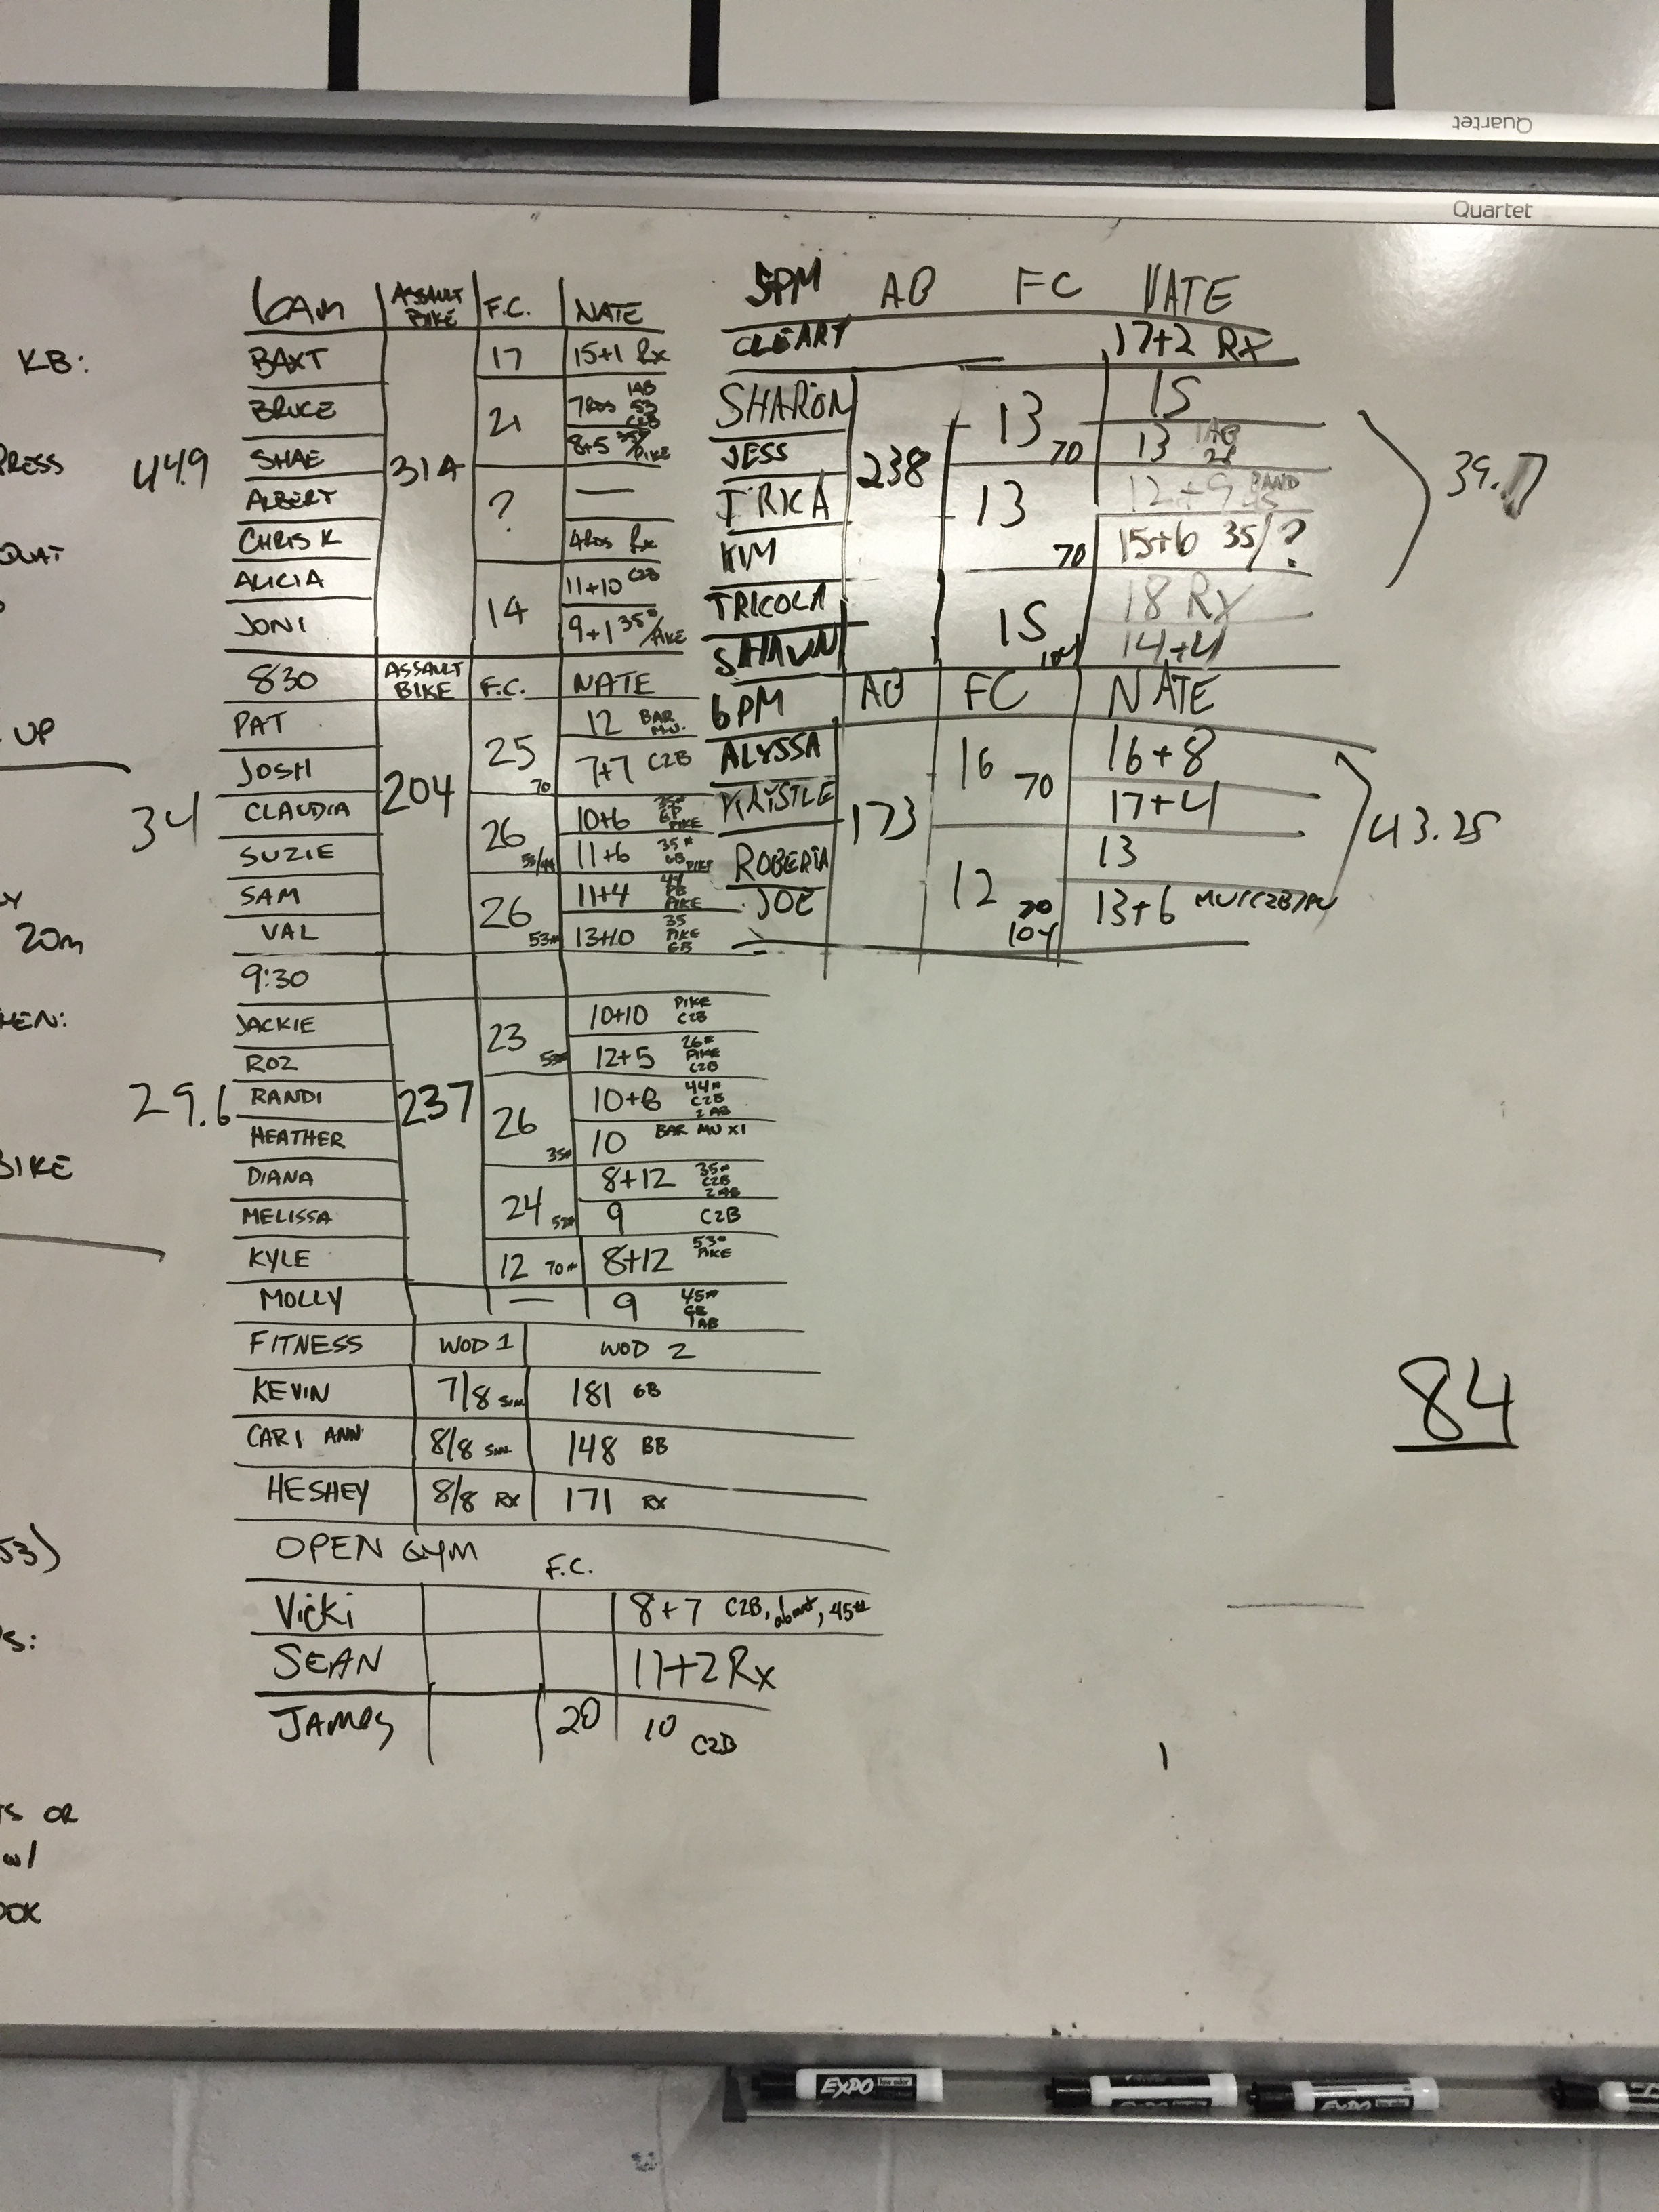 Quartet
Quartet
KB:
PRESS
UP
20m
HEN:
BIKE
53)
S:
OR
w/
6AM ASSAULT BIKE F.C. NATE
BAXT 17 15+1 Rx
BRUCE 21 7RDS 1AB 53 C2B
SHAE 8+5 35# /PIKE
44.9 314
ALBERT ? —
CHRIS K 4RDS Rx
ALICIA 14 11+10 C2B
JONI 9+1 35# /PIKE
830 ASSAULT BIKE F.C. NATE
PAT 25 70 12 BAR M.U.
JOSH 7+7 C2B
34 204
CLAUDIA 26 10+6 35# PIKE
SUZIE 11+6 35# GB PIKE
SAM 26 53# 11+4 44 PIKE
VAL 13+10 35 PIKE GB
9:30
JACKIE 23 53# 10+10 PIKE C2B
ROZ 12+5 26# PIKE C2B
29.6 237
RANDI 26 35# 10+8 44# C2B 2 AB
HEATHER 10 BAR MU X1
DIANA 24 53# 8+12 35# C2B 2 AB
MELISSA 9 C2B
KYLE 12 70# 8+12 53# PIKE
MOLLY — 9 45# GB 1AB
FITNESS WOD 1 WOD 2
KEVIN 7/8 181 GB
CARI ANN 8/8 148 BB
HESHEY 8/8 RX 171 RX
OPEN GYM F.C.
Vicki 8+7 C2B, abmat, 45#
SEAN 11+2 Rx
JAMES 20 10 C2B
5PM AB FC NATE
CLEARY 17+2 RX
SHARON 13 70 15
JESS 13 1AB
238 39.7
13 70 12+9 BAND
KIM 15+6 35/?
TRICOLA 15 104 18 RX
SHAWN 14+4
6PM AB FC NATE
ALYSSA 16 70 16+8
KRISTLE 17+4
173 43.25
ROBERTA 12 70 104 13
JOE 13+6 MU/C2B/PU
84
EXPO low odor
EXPO